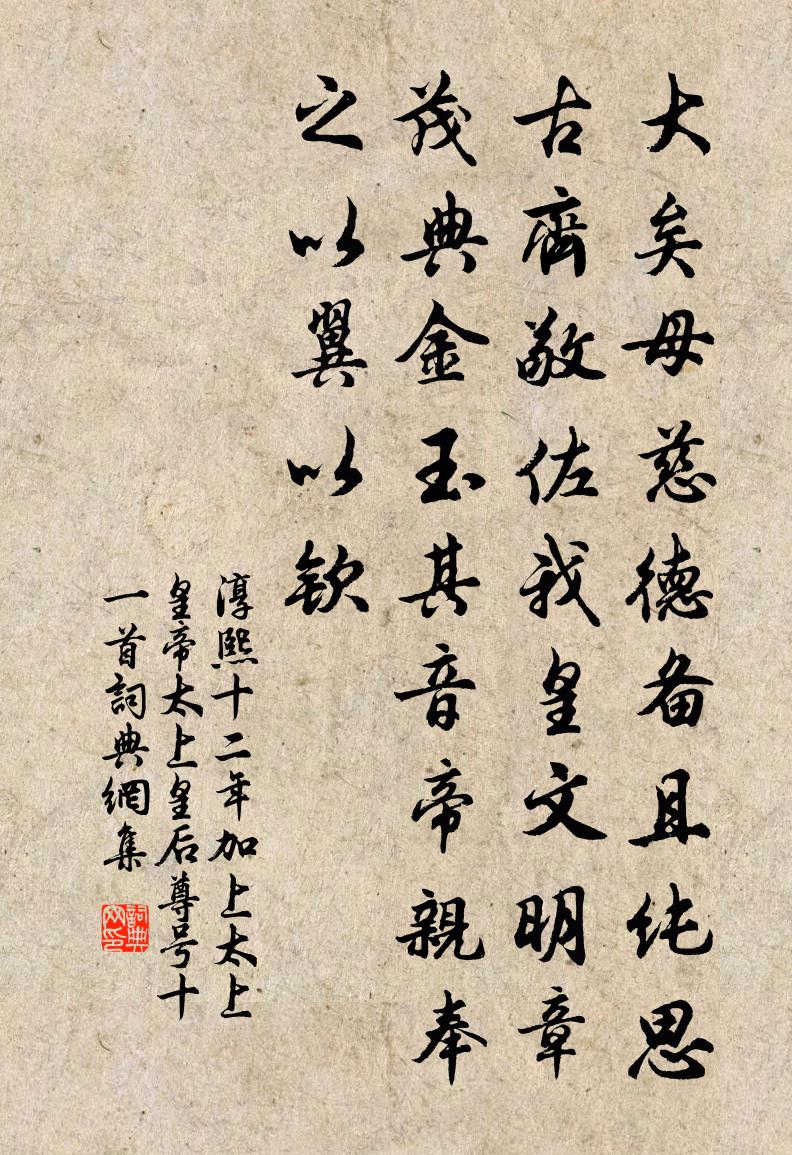 大矣母慈德备且纯思
古齊敬佐我皇文明章
茂典金玉其音帝親奉
之以翼以欽
淳熙十二年加上太上
皇帝太上皇后尊号十
一首詞典網集
詞典網印